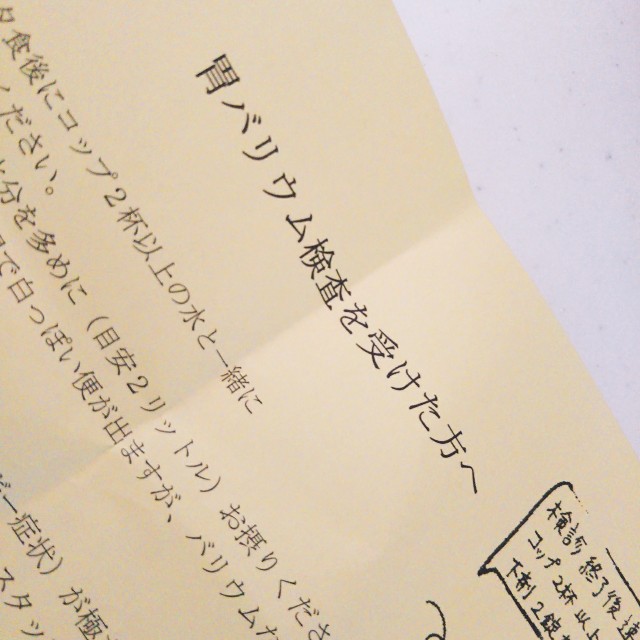 胃バリウム検査を受けた方へ
食後にコップ2杯以上の水と一緒に
ださい。
分を多めに（目安2リットル）お摂りくださ
で白っぽい便が出ますが、バリウムだ
症状）が極
スタッ
検診終了後
コップ2杯以上
下剤2錠